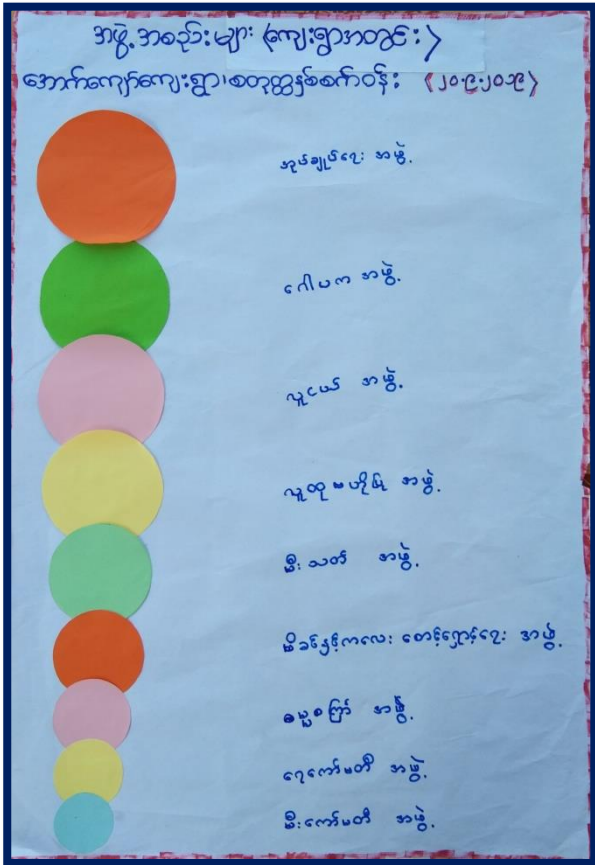 အဖွဲ့အစည်းများ (ကျေးရွာအတွင်း)
အောက်ကျော်ကျေးရွာ၊စတုတ္ထနှစ်စက်ဝန်း (၂၀.၉.၂၀၁၉)
အုပ်ချုပ်ရေး အဖွဲ့
ဂေါပက အဖွဲ့
လူငယ် အဖွဲ့
လူထုမဟိုပြု အဖွဲ့
မီးသတ် အဖွဲ့
မိခင်နှင့်ကလေး စောင့်ရှောက်ရေး အဖွဲ့
ဓမ္မစကြာ် အဖွဲ့
ရေကော်မတီ အဖွဲ့
မီးကော်မတီ အဖွဲ့